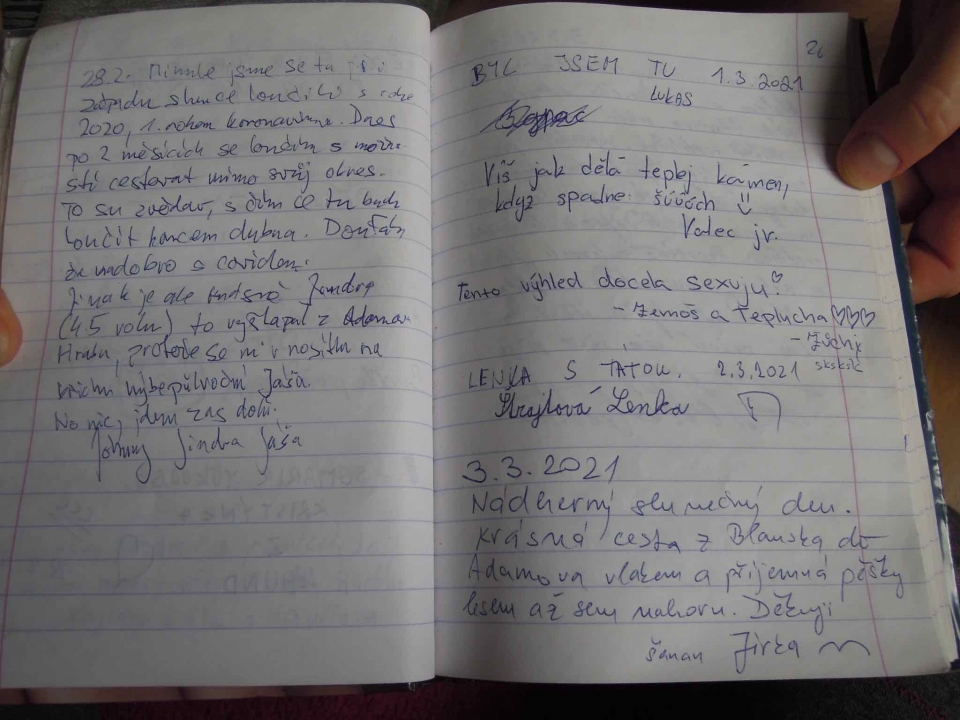 28.2. Minule jsme se tu při
západu slunce loučili s rokem
2020, 1. rokem koronaviru. Dnes
po 2 měsících se loučím s možno-
stí cestovat mimo svůj okres.
To su zvědav, s čím se tu budu
loučit koncem dubna. Doufám
že nadobro s covidem.
Jinak je ale krásně Jindra
(4,5 roku) to vyšlapal z Adamova
Hradu, protože se mi v nosítku na
břichu Jáša
No nic, jdem zas dolů.
Johny Jindra Jáša
26
BYL JSEM TU 1.3.2021
LUKAS
Víš jak dělá teplej kámen,
když spadne: šúúúch
Valec jr.
Tento výhled docela sexuju!
- Zemôš a Teplucha
- Zůchy
sksksk
LENKA S TÁTOU. 2.3.2021
Strajtová Lenka
3.3.2021
Nádherný slunečný den.
Krásná cesta z Blanska do
Adamova vlakem a příjemná pěšky
lesem až sem nahoru. Děkuji
Šaman Jirka